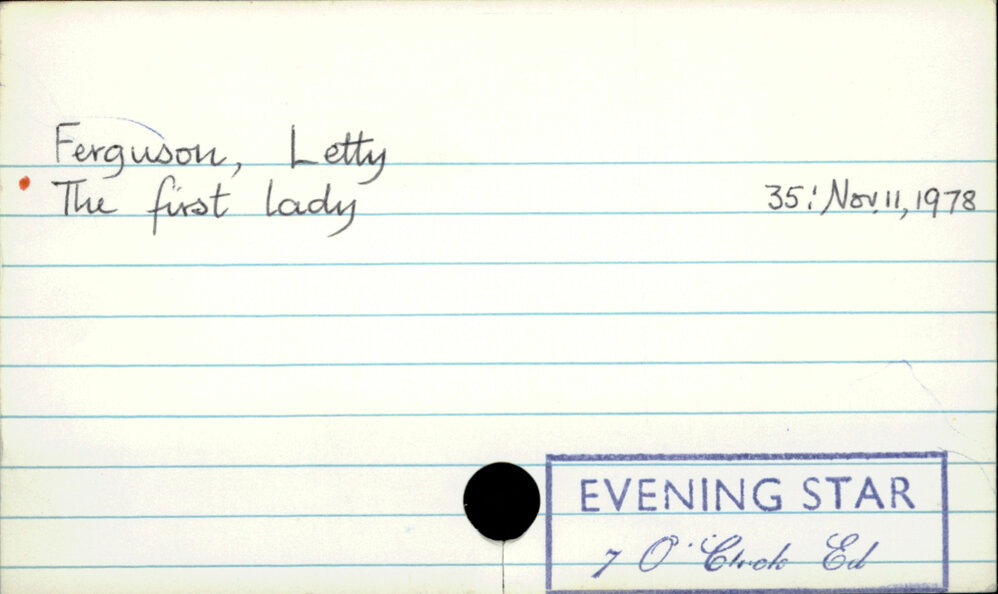 Ferguson, Letty
The first lady 35: Nov. 11, 1978
EVENING STAR
7 O'Clock Ed